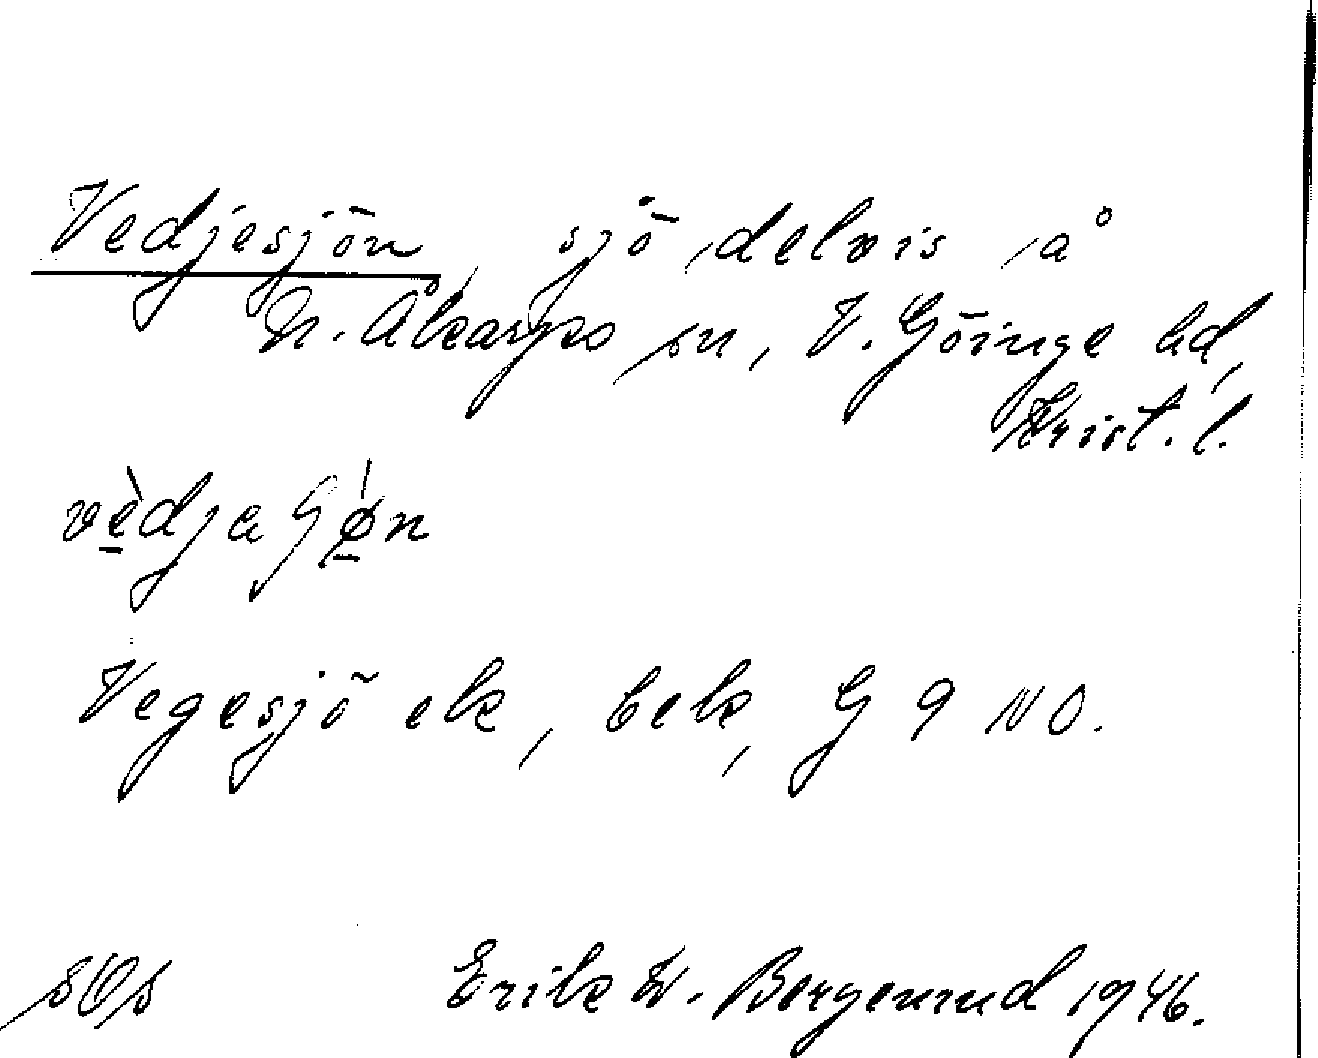 Vedjesjön, sjö delvis å
N. Åkarps sn, V. Göinge hd,
Krist. l.
Vegesjö ek, bek, G 9 NO.
SOs Erik W. Bergenrud 1946.